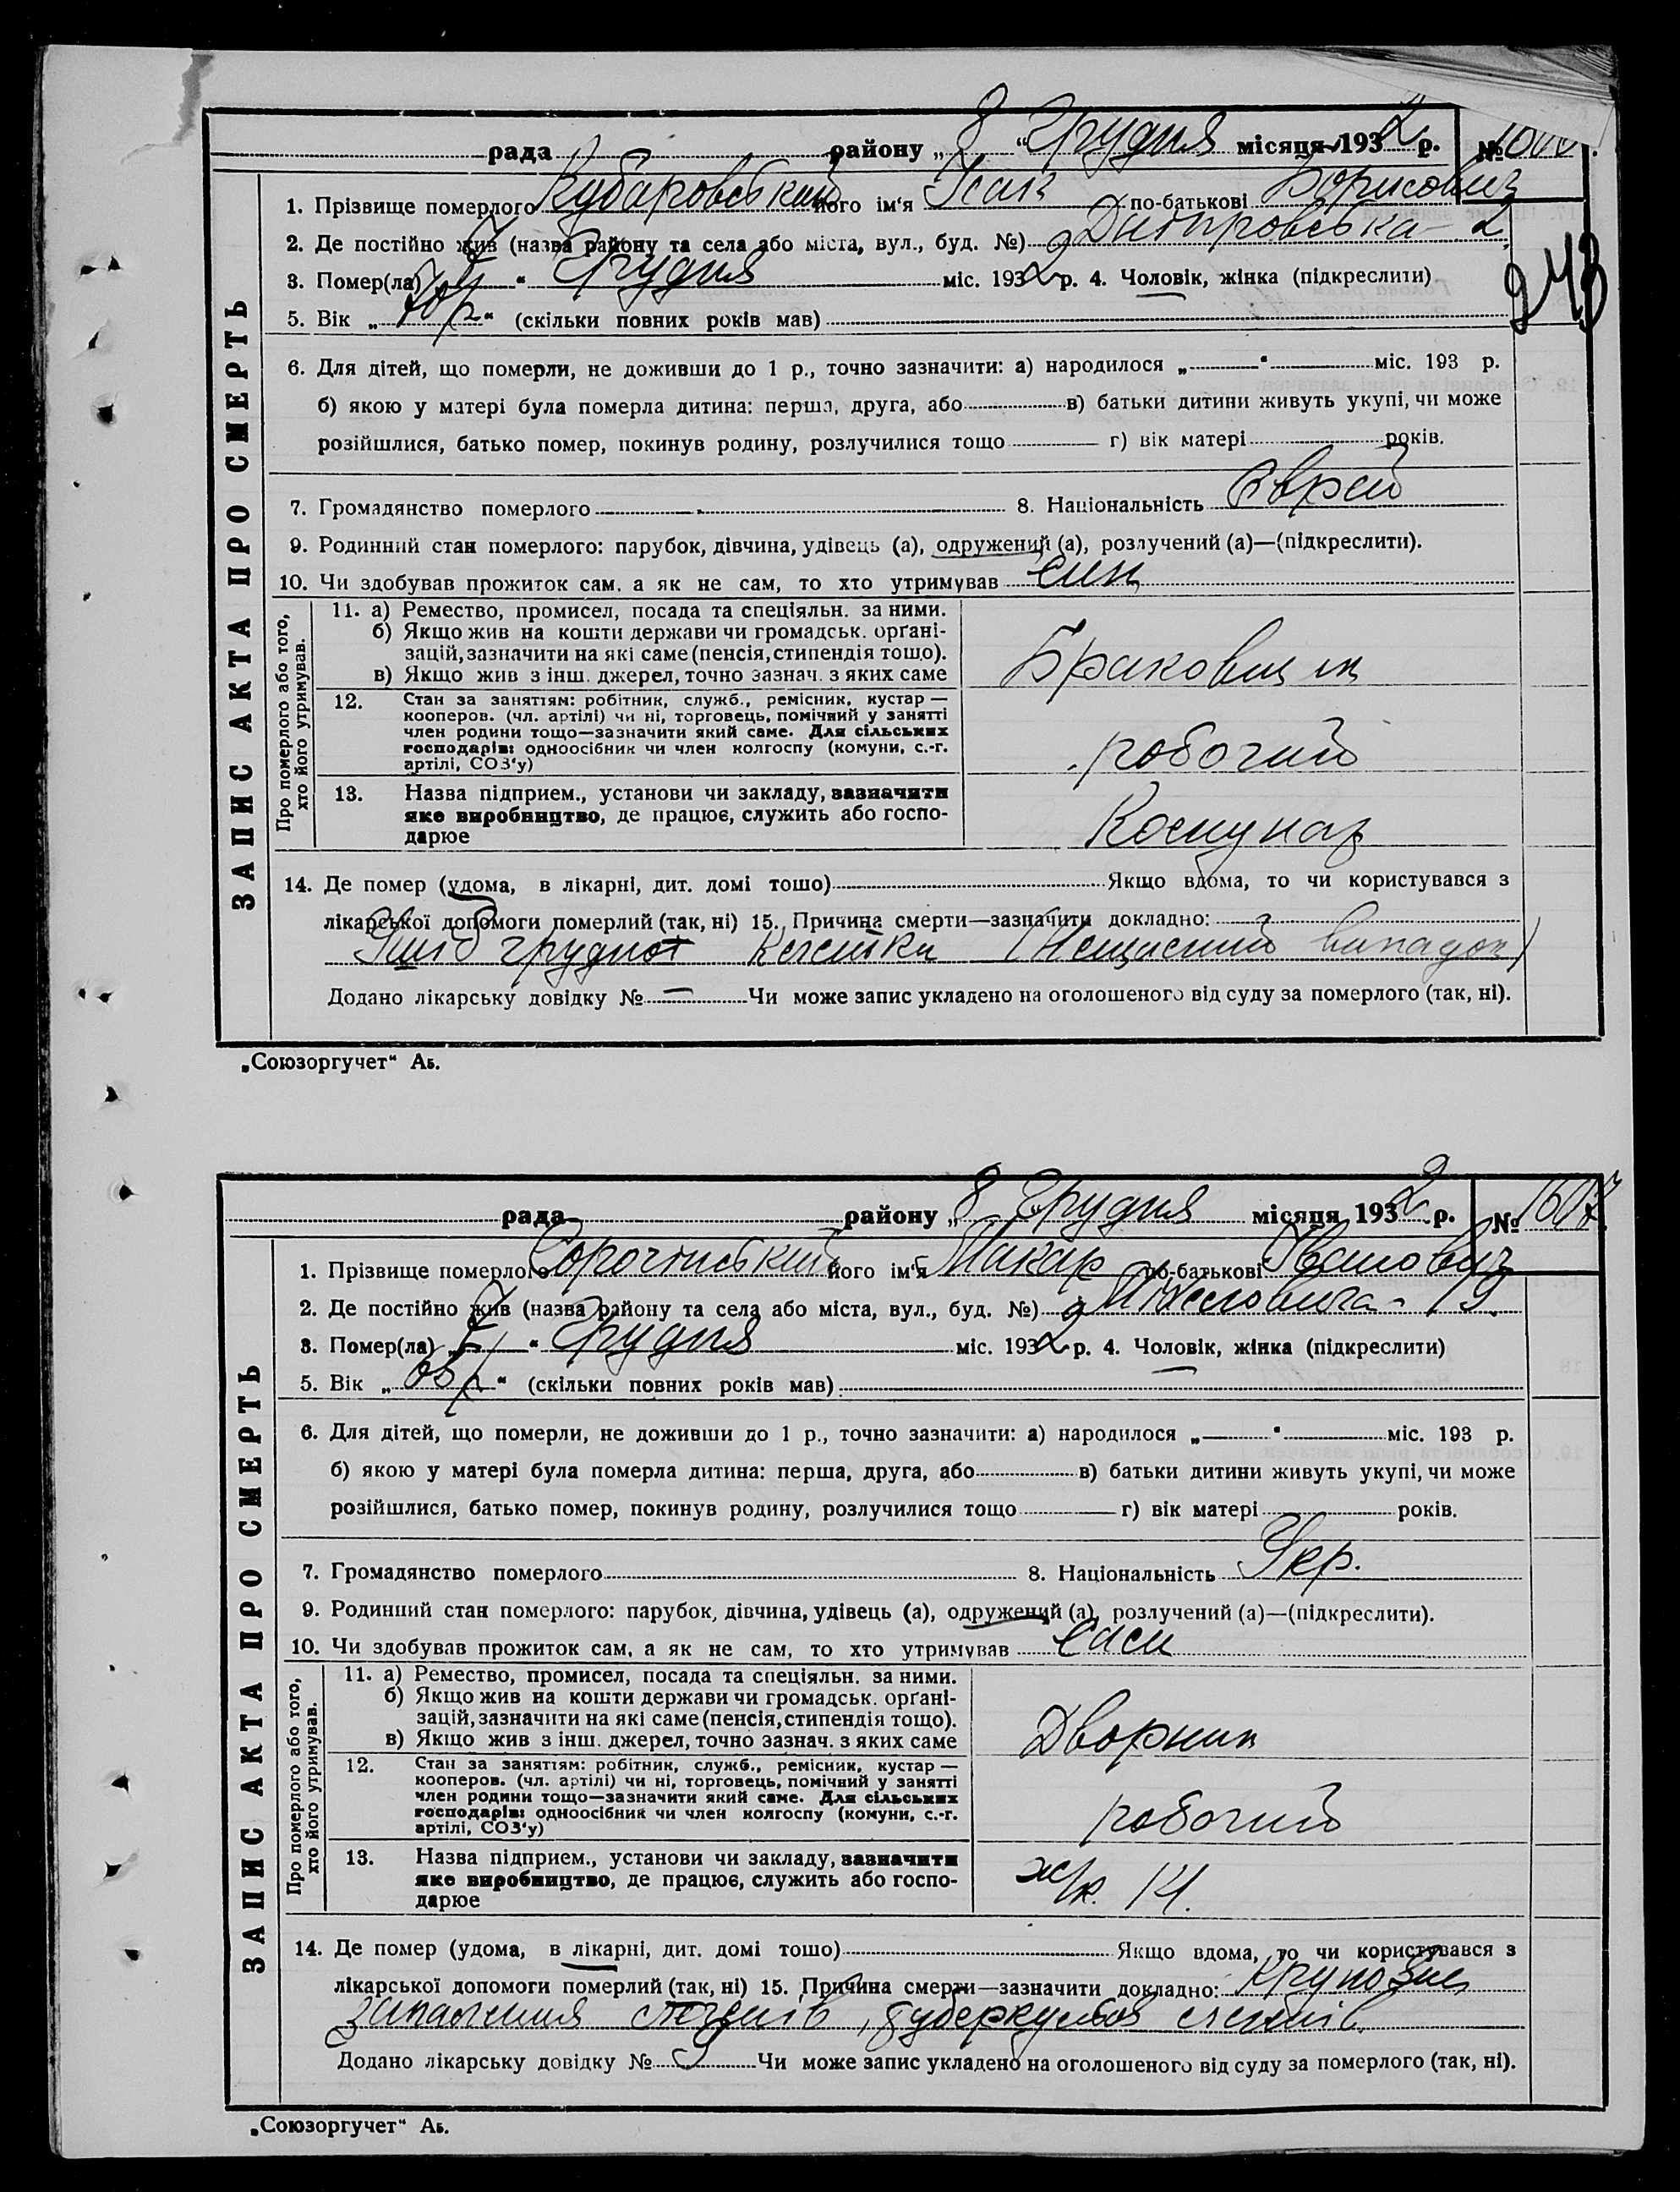 рада района „ 8 “ Грудня місяця 1932 р. №
1. Прізвище померлого Кубаровський його ім‘я Ісак по-батькові Борисович
2. Де постійно жив (назва району та села або міста, вул., буд. №) Дніпровська - 2
243
3. Помер(ла) „ 7 “ Грудня міс. 1932 р. 4. Чоловік, жінка (підкреслити)
5. Вік „ 70 р “ (скільки повних років мав)
6. Для дітей, що померли, не доживши до 1 р., точно зазначити: а) народилося „ “ міс. 193 р.
б) якою у матері була померла дитина: перша, друга, або в) батьки дитини живуть укупі, чи може
розійшлися, батько помер, покинув родину, розлучилися тощо г) вік матері років.
7. Громадянство померлого 8. Національність Єврей
9. Родинний стан померлого: парубок, дівчина, удівець (а), одружений (а), розлучений (а)—(підкреслити).
10. Чи здобував прожиток сам, а як не сам, то хто утримував син
ЗАПИС АКТА ПРО СМЕРТЬ
Про померлого або того, хто його утримував.
11. а) Ремество, промисел, посада та спеціяльн. за ними.
б) Якщо жив на кошти держави чи громадськ. орґані-
зацій, зазначити на які саме (пенсія, стипендія тощо).
в) Якщо жив з інш. джерел, точно зазнач. з яких саме
Браковщик
12. Стан за заняттям: робітник, служб., ремісник, кустар —
кооперов. (чл. артілі) чи ні, торговець, помічний у занятті
член родини тощо—зазначити який саме. Для сільських
господарів: одноосібник чи член колгоспу (комуни, с.-г.
артілі, СОЗ‘у)
робочий
13. Назва підприєм., установи чи закладу, зазначити
яке виробництво, де працює, служить або госпо-
дарює
Комунар
14. Де помер (удома, в лікарні, дит. домі тощо) Якщо вдома, то чи користувався з
лікарської допомоги померлий (так, ні) 15. Причина смерти—зазначити докладно:
грудної клітки (Нещасний випадок)
Додано лікарську довідку № — Чи може запис укладено на оголошеного від суду за померлого (так, ні).
„Союзоргучет“ Аь.
рада району „ 8 Грудня місяця 1932 р. № 1607
1. Прізвище померлого Сорочинський його ім‘я Макар по-батькові Іванович
2. Де постійно жив (назва району та села або міста, вул., буд. №) 19
3. Помер(ла) „ 7 “ Грудня міс. 1932 р. 4. Чоловік, жінка (підкреслити)
5. Вік „ р “ (скільки повних років мав)
6. Для дітей, що померли, не доживши до 1 р., точно зазначити: а) народилося „ “ міс. 193 р.
б) якою у матері була померла дитина: перша, друга, або в) батьки дитини живуть укупі, чи може
розійшлися, батько помер, покинув родину, розлучилися тощо г) вік матері років.
7. Громадянство померлого 8. Національність Укр.
9. Родинний стан померлого: парубок, дівчина, удівець (а), одружений (а), розлучений (а)—(підкреслити).
10. Чи здобував прожиток сам, а як не сам, то хто утримував сам
ЗАПИС АКТА ПРО СМЕРТЬ
Про померлого або того, хто його утримував.
11. а) Ремество, промисел, посада та спеціяльн. за ними.
б) Якщо жив на кошти держави чи громадськ. орґані-
зацій, зазначити на які саме (пенсія, стипендія тощо).
в) Якщо жив з інш. джерел, точно зазнач. з яких саме
Дворник
12. Стан за заняттям: робітник, служб., ремісник, кустар —
кооперов. (чл. артілі) чи ні, торговець, помічний у занятті
член родини тощо—зазначити який саме. Для сільських
господарів: одноосібник чи член колгоспу (комуни, с.-г.
артілі, СОЗ‘у)
робочий
13. Назва підприєм., установи чи закладу, зазначити
яке виробництво, де працює, служить або госпо-
дарює
14. Де помер (удома, в лікарні, дит. домі тощо) Якщо вдома, то чи користувався з
лікарської допомоги померлий (так, ні) 15. Причина смерти—зазначити докладно: Крупозне
запалення легенів, туберкульоз легенів.
Додано лікарську довідку № Чи може запис укладено на оголошеного від суду за померлого (так, ні).
„Союзоргучет“ Аь.